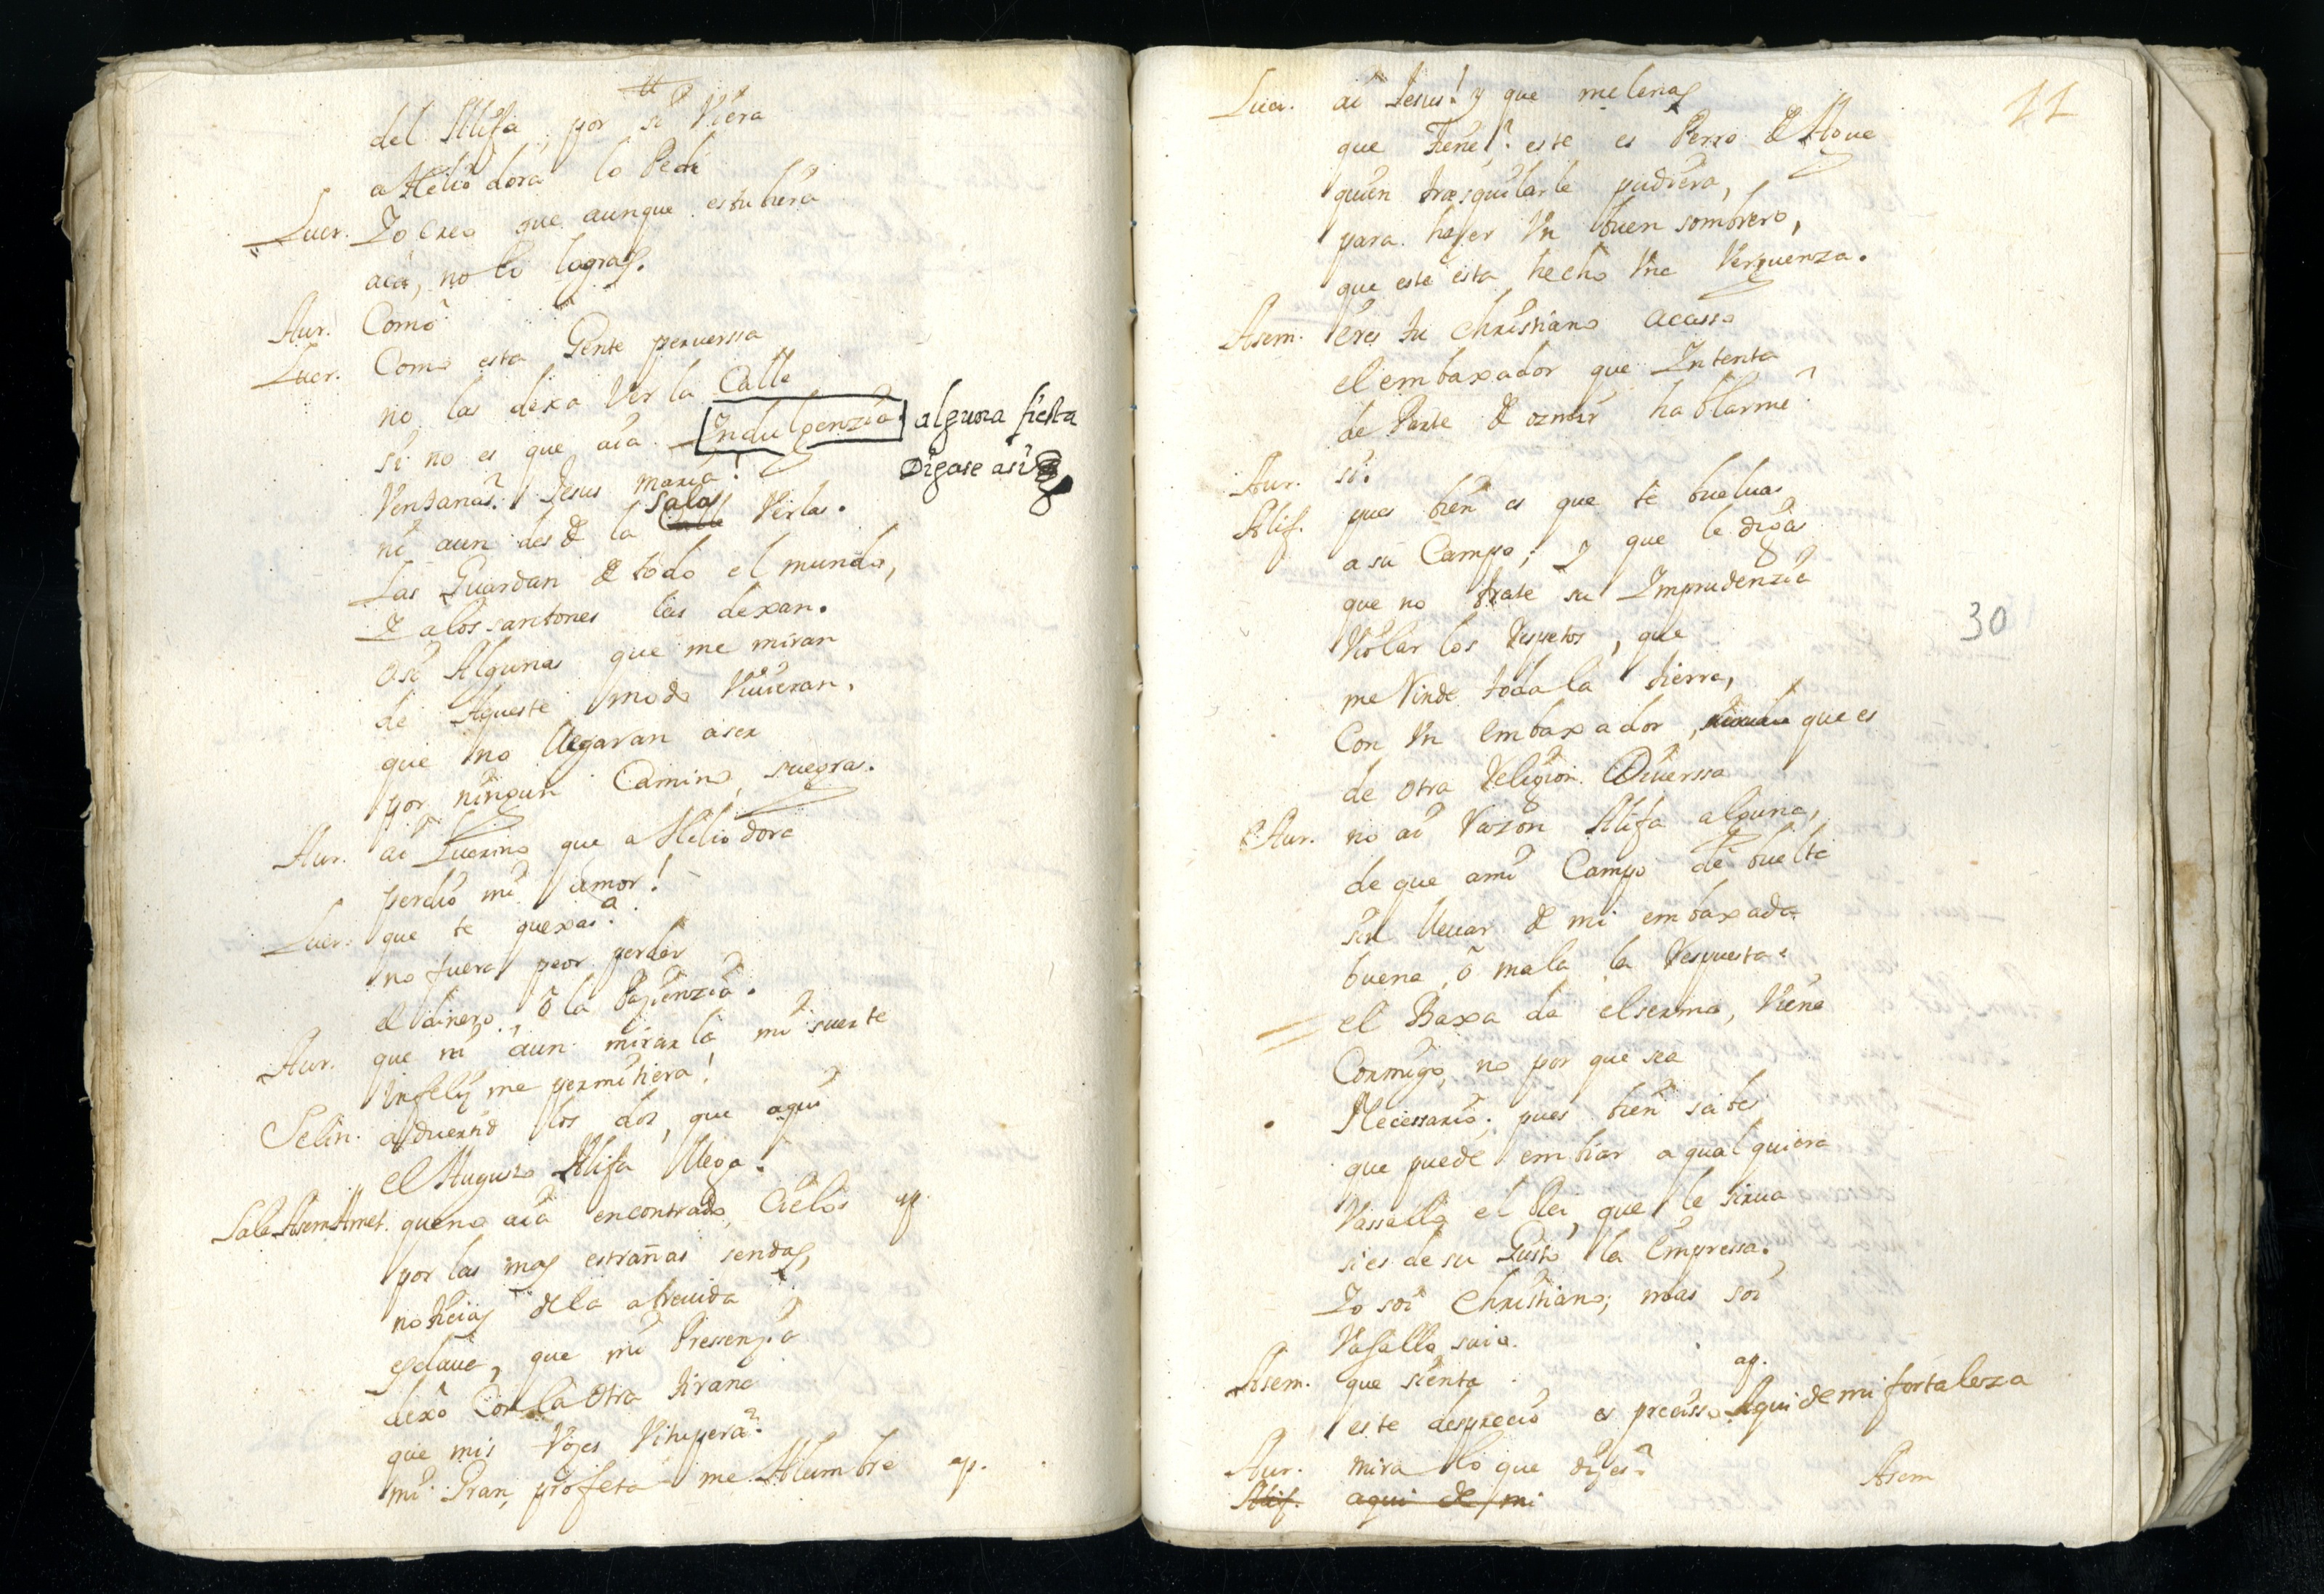 del Alifa, por si Viera
a Heliodora lo Pedi
Lucr. Yo creo que aunque estubiera
acá, no lo logras.
Aur. Como?
Lucr. Como esta Gente peruerssa
no las dexa Ver la Calle
si no es que aia Indulgenzia. alguna fiesta
Digase asi
Ventanas? Jesus maria!
ni aun desde la Calle Salas Verlas.
Las Guardan de todo el mundo,
Y a los santones las dexan.
O si Algunas que me miran
de Aqueste modo Viuieran,
que no llegaran a ser
por ningun Camino, suegras.
Aur. ai Luerino que a Heliodora
perdio mi amor!
Lucr. que te quexas?
no fuera peor perder
el dinero, ô la Pazienzia.
Aur. que ni aun mirarla mi suerte
Infeliz me permitiera!
Selin. aduertid los dos, que aqui
el Augusto Alifa llega.
Sale Asem Amet. que no aia encontrado, Cielos ap.
por las mas estrañas sendas,
noticias de la atreuida
esclaua, que mi Pressenzia
dexô Con la Otra tirana
que mis Vozes Vitupera?
mi Gran profeta me Alumbre ap.
11
Lucr. ai Jesus! y que melenas
que tiene? este es Perro de Agua
quien trasquilarle pudiera,
para hazer Vn buen sombrero,
que este esta hecho Vna Verguenza.
Asem. eres tu Christiano acasso
el embaxador que Intenta
de Parte de ozmir hablarme?
Aur. si.
Alif. pues bien es que te bueluas
a su Campo; y que le digas
que no trate su Imprudenzia
Violar los Respetos, que
me Rinde toda la tierra,
30
Con Vn embaxador, que es
de otra Religion Diuerssa
Aur. no ai Razon Alifa alguna,
de que a mi Campo dé buelta
sin lleuar de mi embaxada
buena, ô mala la Respuesta.
el Baxa da elserma, Viene
Conmigo, no por que sea
Necessario; pues bien sabes
que puede embiar a qualquiera
Vassallo el Rei, que le sirua
si es de su Gusto la Empressa.
Yo soi Christiano; mas soi
Vasallo suio.
Asem. que sienta ap.
este desprecio es precisso. Aqui de mi fortaleza
Aur. mira lo que dizes?
Alif. aqui de mi
Asem